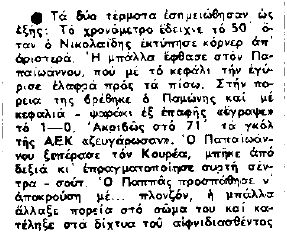 ● Τά δύο τέρματα ἐσημειώθησαν ὡς
ἑξῆς: Τό χρονόμετρο ἔδειχνε τό 50΄
ὅταν ὁ Νικολαΐδης ἐκτύπησε κόρνερ ἀπ΄
ἀριστερά. Ἡ μπάλλα ἔφθασε στόν Πα-
παϊωάννου, πού μέ τό κεφάλι τήν ἐγύ-
ρισε ἐλαφρά πρός τά πίσω. Στήν πο-
ρεία της βρέθηκε ὁ Παμώνης καί μέ
κεφαλιά - ψαράκι ἐξ ἐπαφῆς «ἔγραψε»
τό 1—0. Ἀκριβῶς στό 71΄ τά γκόλ
τῆς ΑΕΚ «ζευγάρωσαν». Ὁ Παπαϊωάν-
νου ξεπέρασε τόν Κουρέα, μπῆκε ἀπό
δεξιά κι΄ ἐπραγματοποίησε συρτή σέν-
τρα - σούτ. Ὁ Παππᾶς προσπάθησε ν΄
ἀποκρούση μέ... πλονζόν, ἡ μπάλλα
ἄλλαξε πορεία στό σῶμα του καί κα-
τέληξε στά δίχτυα τοῦ αἰφνιδιασθέντος